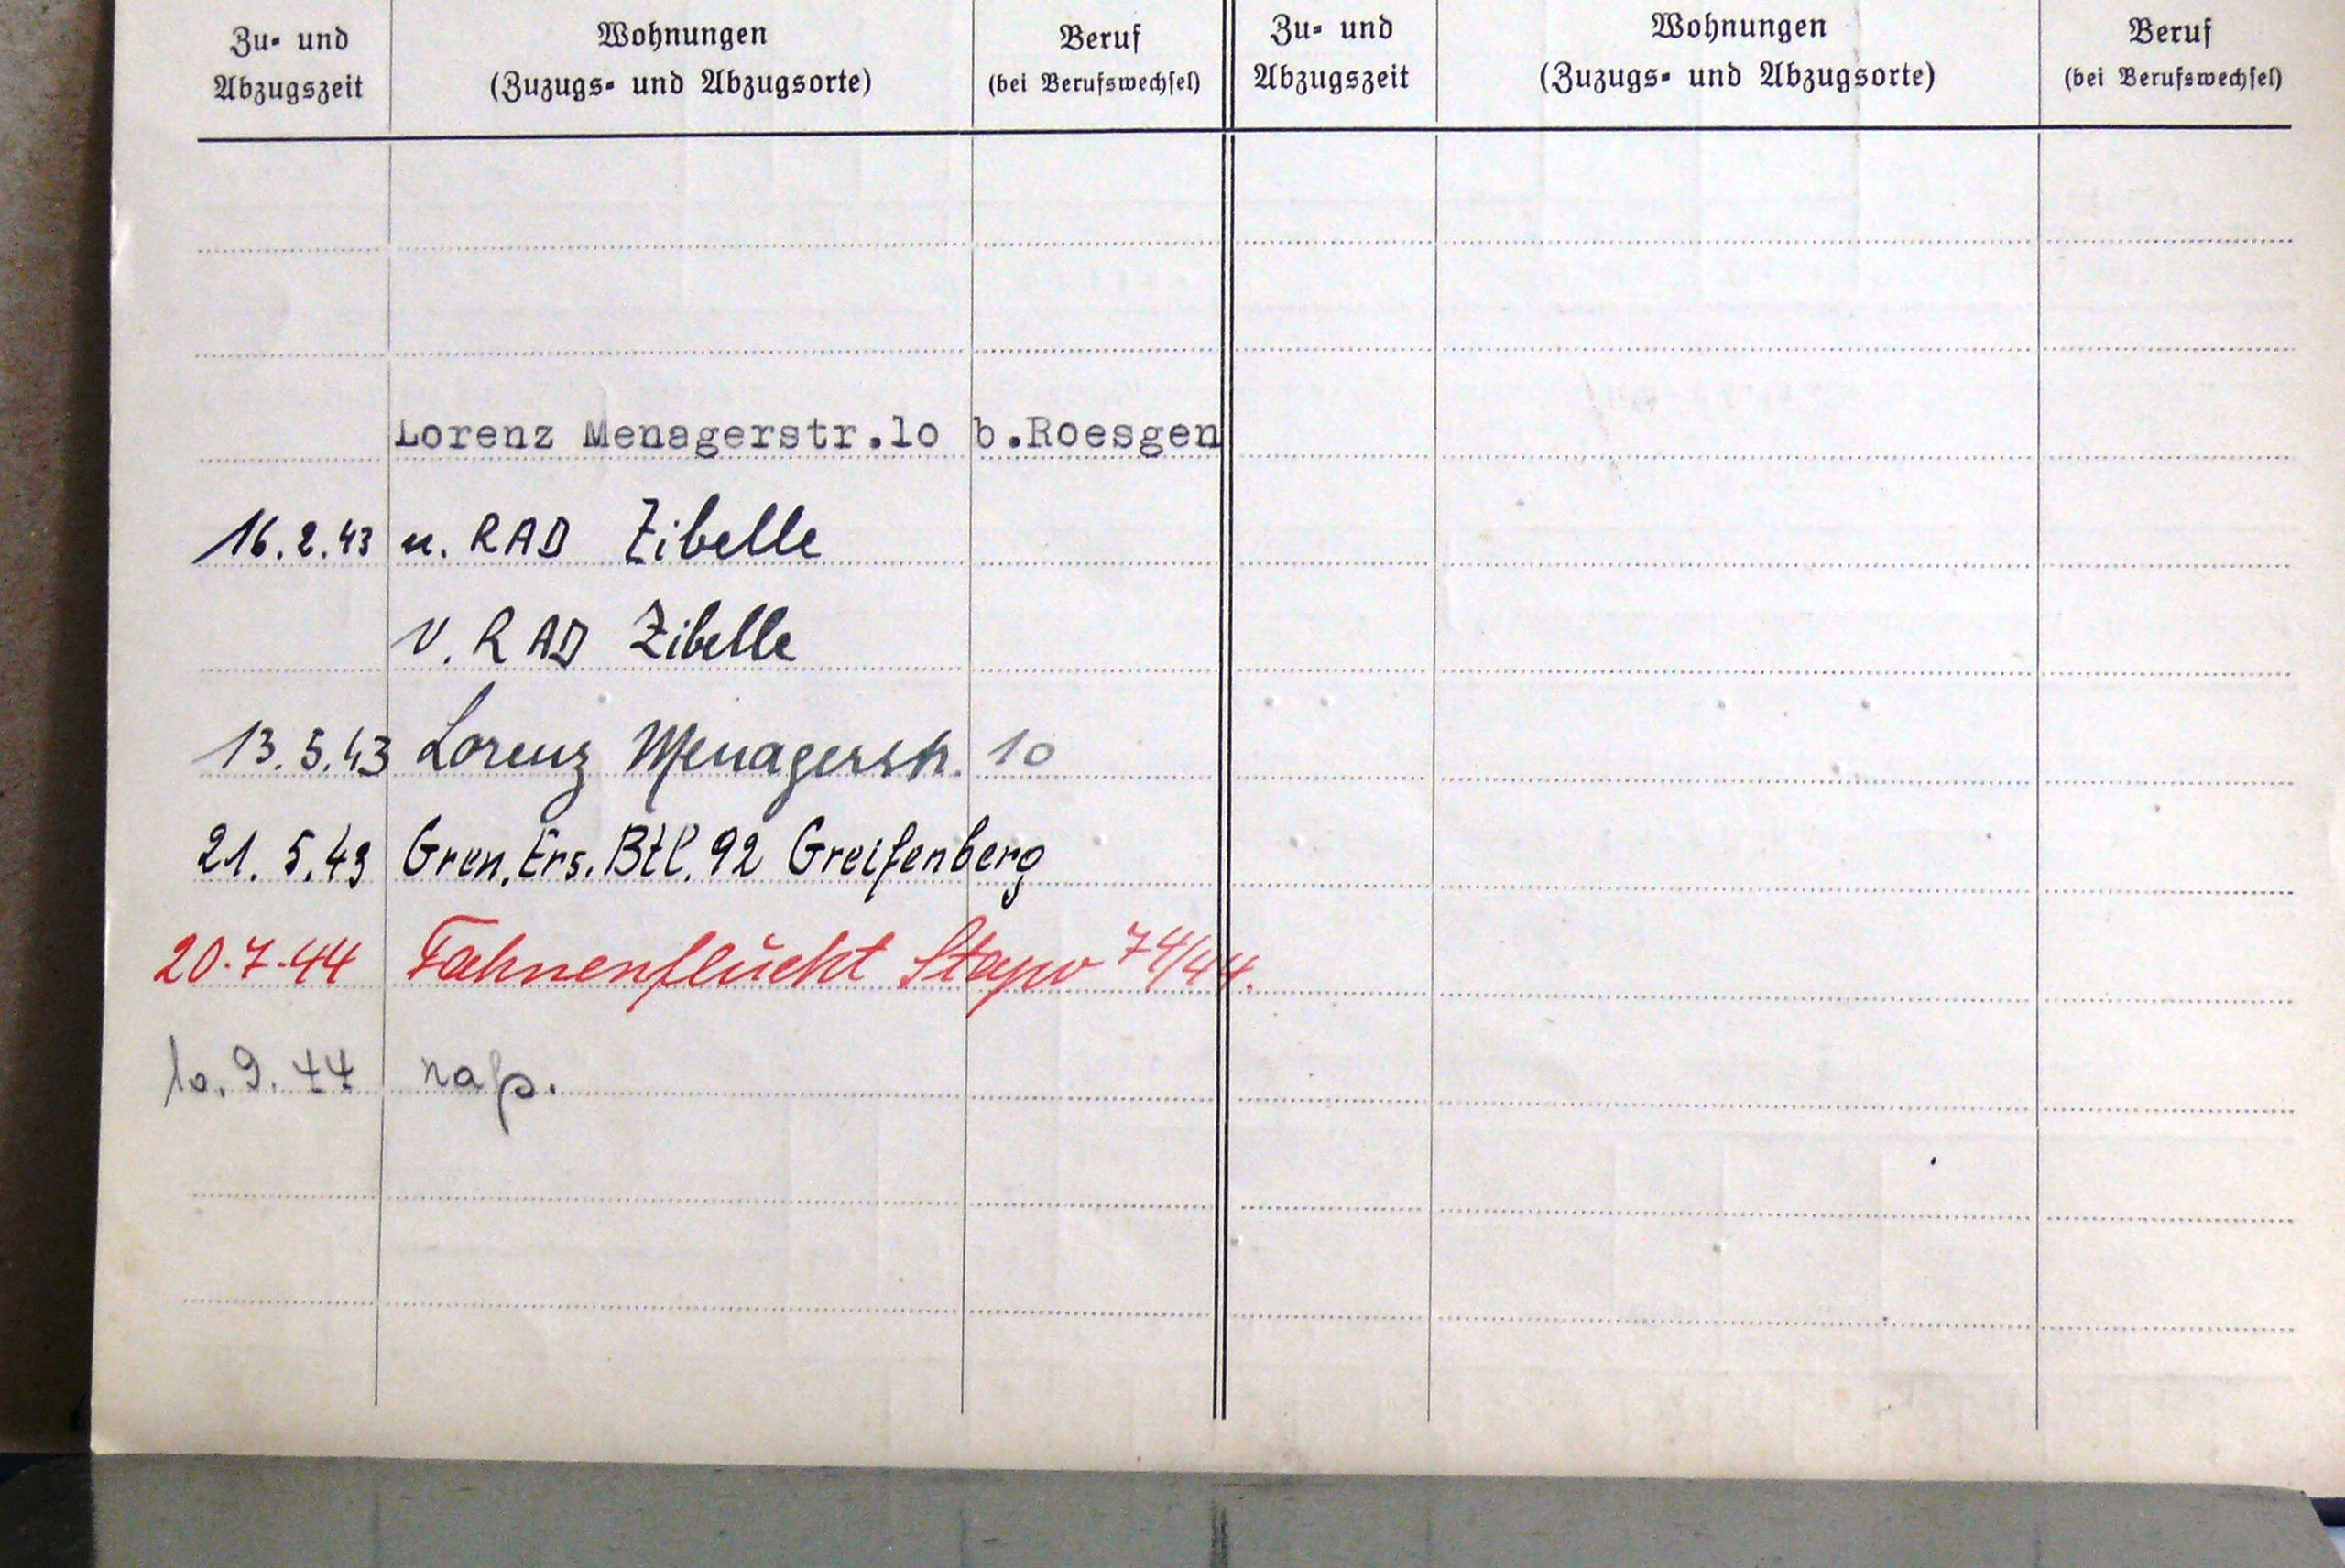 Zu- und Abzugszeit
Wohnungen
(Zuzugs- und Abzugsorte)
Beruf
(bei Berufswechsel)
Zu- und Abzugszeit
Wohnungen
(Zuzugs- und Abzugsorte)
Beruf
(bei Berufswechsel)
Lorenz Menagerstr.lo b.Roesgen
16.2.43 n. RAD Zibelle
v. RAD Zibelle
13.5.43 Lorenz Menagerstr. 10
21.5.43 Gren. Ers. Btl. 92 Greifenberg
20.7.44 Fahnenflucht Stapo 74/44.
10.9.44